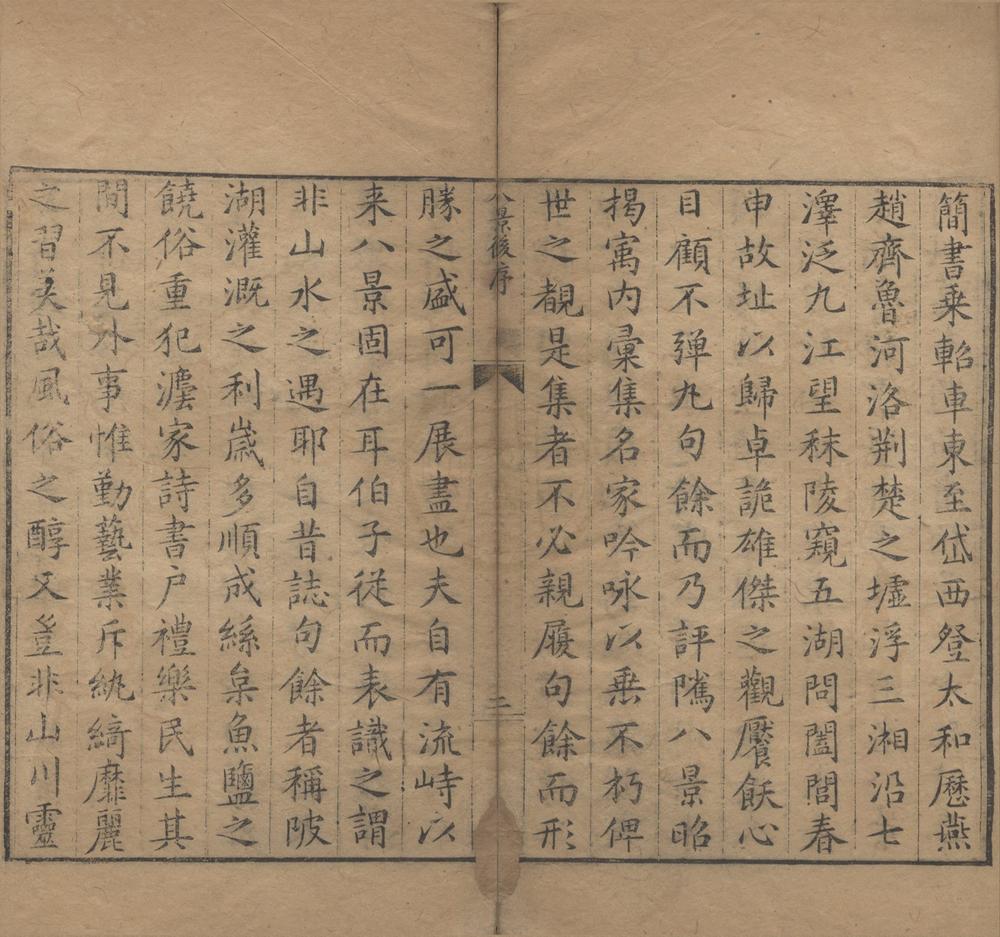 簡書乗軺車東至岱西登太和歷燕
趙齊魯河洛荆楚之墟浮三湘沿七
澤泛九江望秣陵窺五湖問闔閭春
申故址以歸卓詭雄傑之觀饜飫心
目顧不彈丸句餘而乃評隲八景昭
揭寓内彚集名家吟咏以垂不朽俾
世之覩是集者不必親履句餘而形
八景後序
二
勝之盛可一展盡也夫自有流峙以
来八景固在耳伯子従而表識之謂
非山水之遇耶自昔誌句餘者稱陂
湖灌溉之利歲多順成絲枲魚鹽之
饒俗重犯灋家詩書户禮樂民生其
間不見外事惟勤藝業斥紈綺靡麗
之習美哉風俗之醇又豈非山川靈